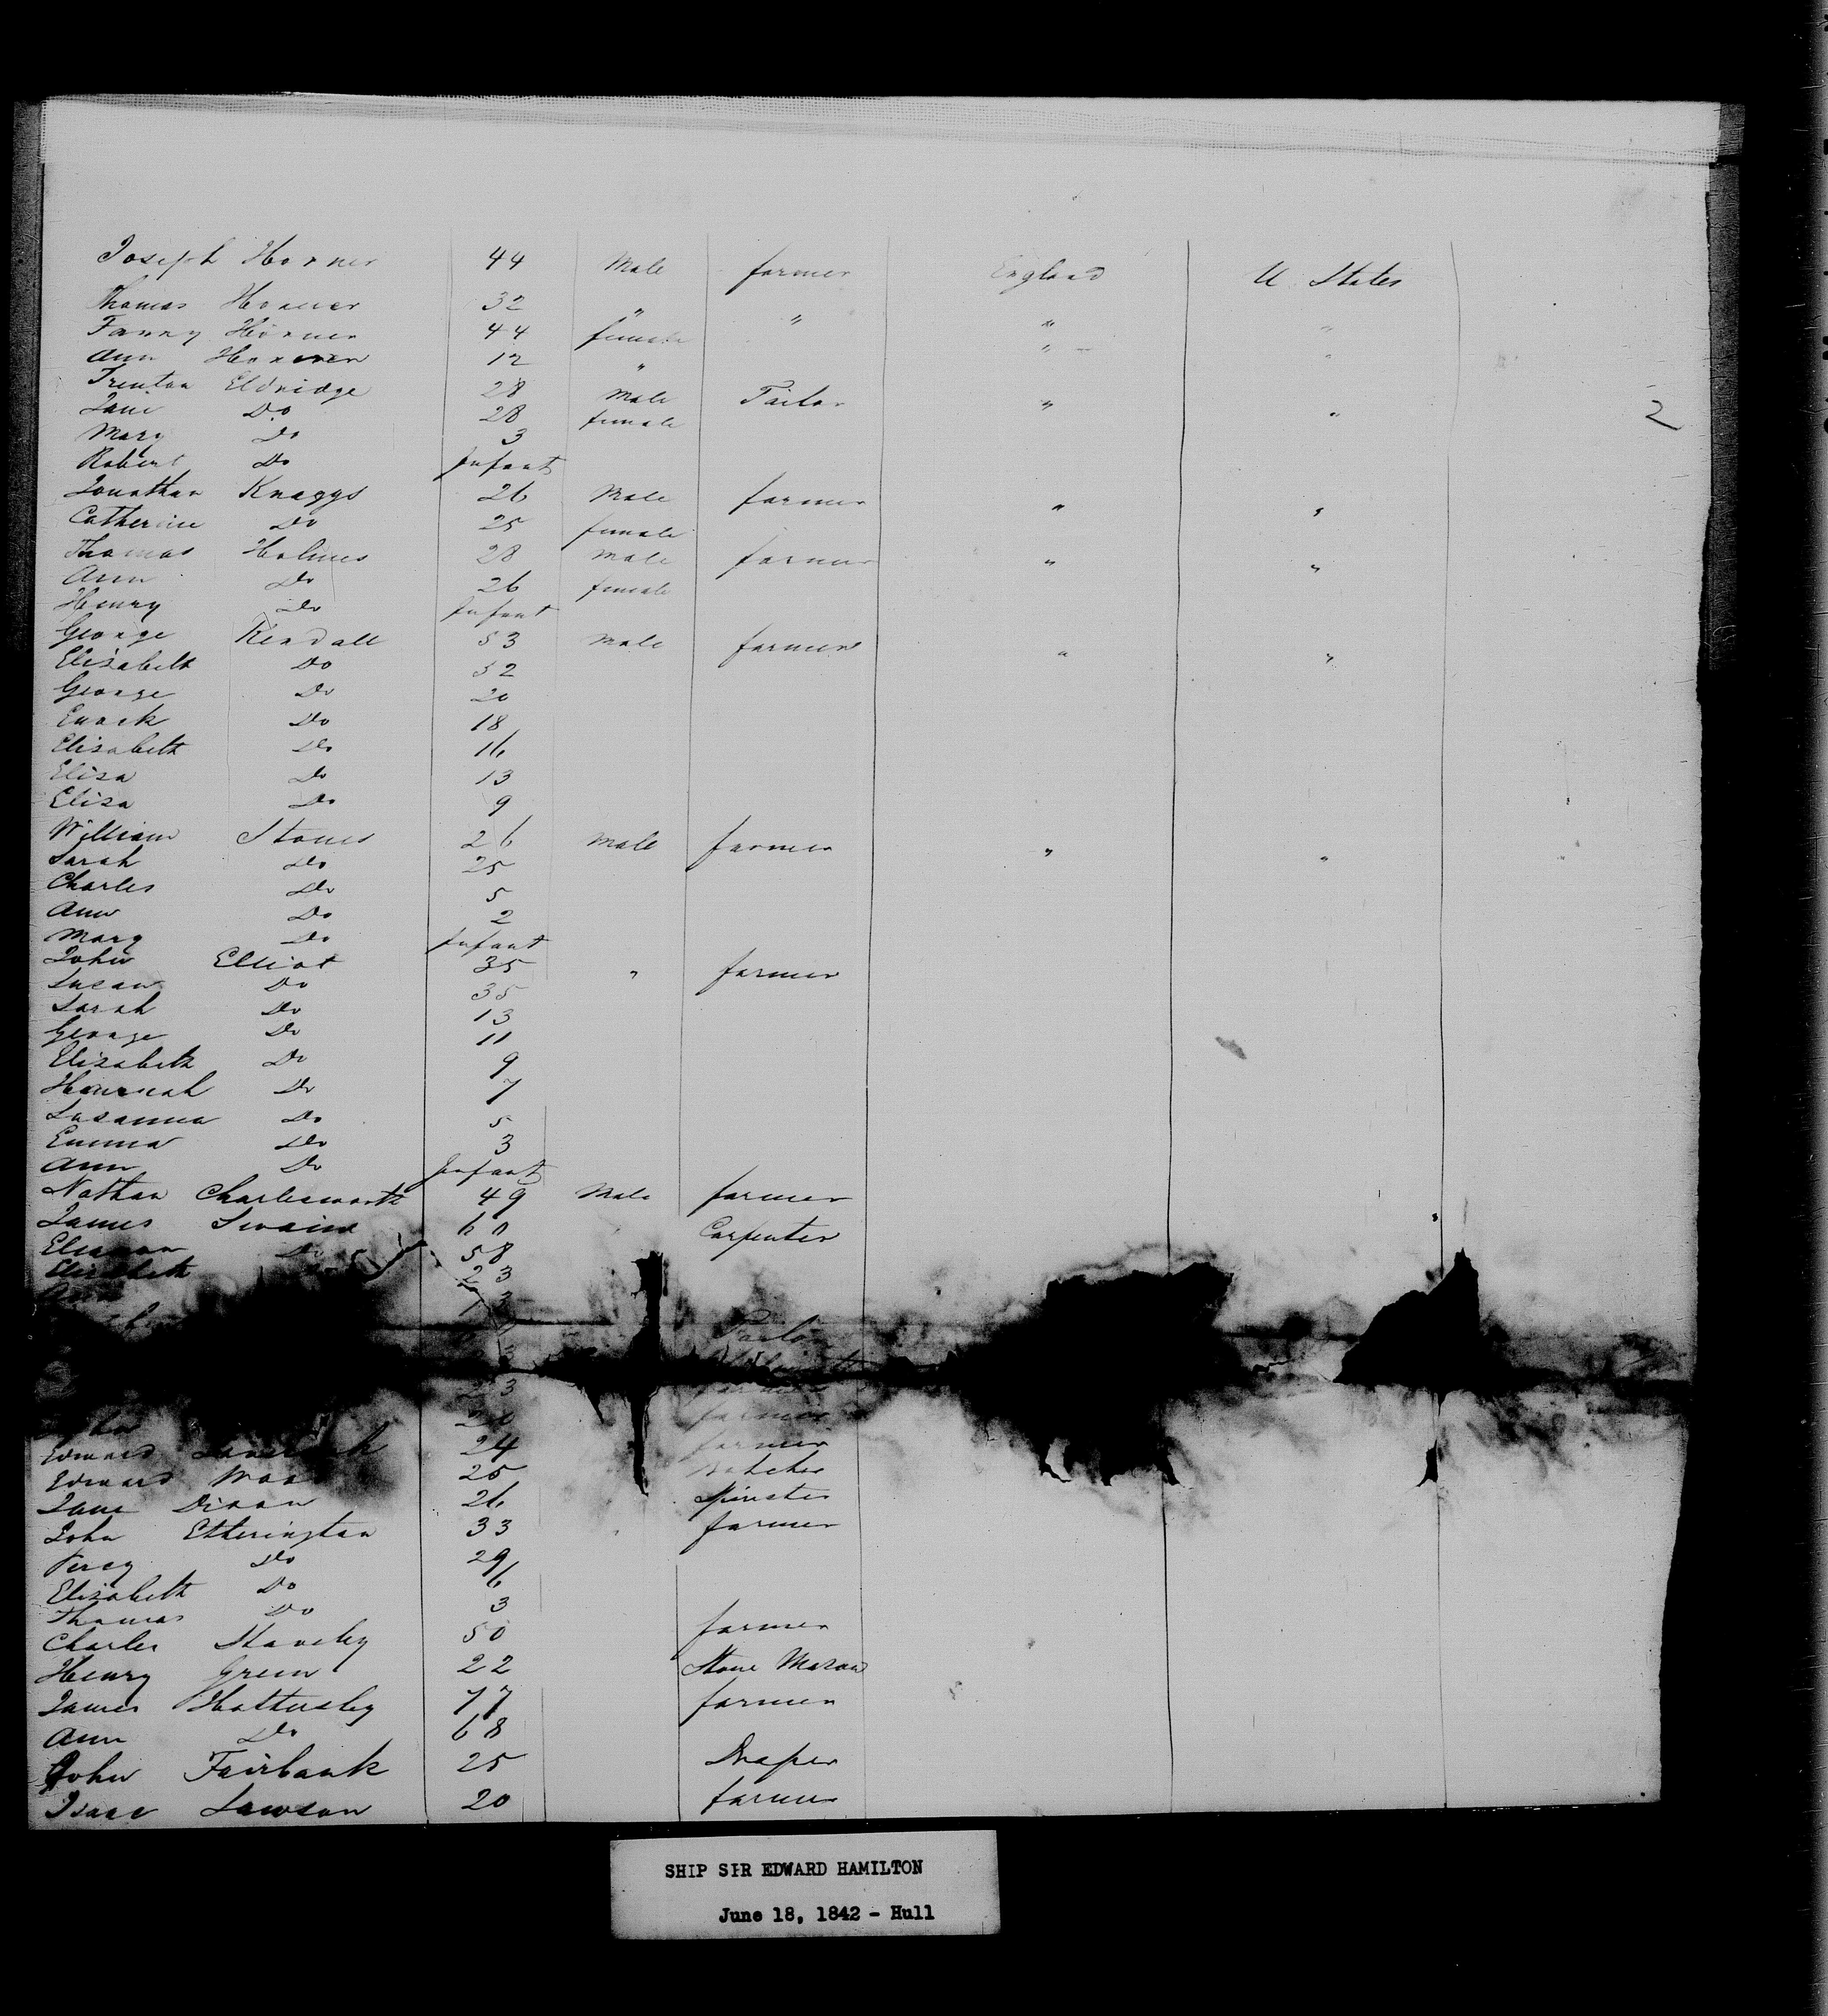 Joseph Horner 44 Male farmer England U States
Thomas Horner 32 " " " "
Fanny Horner 44 female " "
Ann Horner 12 "
Trenton Eldridge 28 Male Tailor " "
Jane Do 28 female
Mary Do 3
Robert Do Infant
2
Jonathan Knaggs 26 Male farmer " "
Catherine Do 25 female
Thomas Holmes 28 Male farmer " "
Ann Do 26 female
Henry Do Infant
George Kendall 53 Male farmer " "
Elisabeth Do 52
George Do 20
Enock Do 18
Elisabeth Do 16
Elisa Do 13
Elisa Do 9
William Stones 26 Male farmer " "
Sarah Do 25
Charles Do 5
Ann Do 2
Mary Do Infant
John Elliot 35 " farmer
Susan Do 35
Sarah Do 13
George Do 11
Elizabeth Do 9
Hannah Do 7
Susanna Do 5
Emma Do 3
Ann Do Infant
Nathan Charlesworth 49 Male farmer
James Swaine 60 Carpenter
Eleanor Do 58
Elizabeth 23
Ann
23
farmer
Edward 24 farmer
Edward 25 Butcher
Jane Dixon 26 Spinster
John Etherington 33 farmer
Percy Do 29
Elizabeth Do 6
Thomas Do 3
Charles Staveley 50 farmer
Henry Green 22 Stone Mason
James Hattersley 77 farmer
Ann Do 68
John Fairbank 25 Draper
Isaac Lawson 20 farmer
SHIP SIR EDWARD HAMILTON
June 18, 1842 - Hull